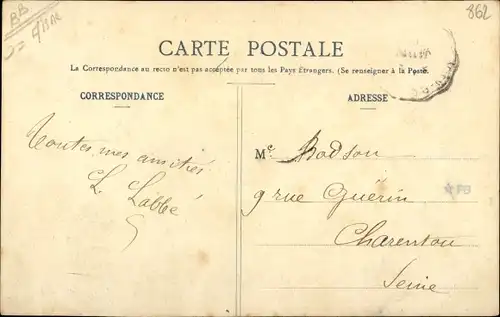 862
BB
CARTE POSTALE
La Correspondance au recto n'est pas acceptée par tous les Pays Étrangers. (Se renseigner à la Poste.
CORRESPONDANCE
ADRESSE
Toutes mes amitiés
L. Labbé
M^e Bodson
9 rue Guérin
Charenton
Seine
FB